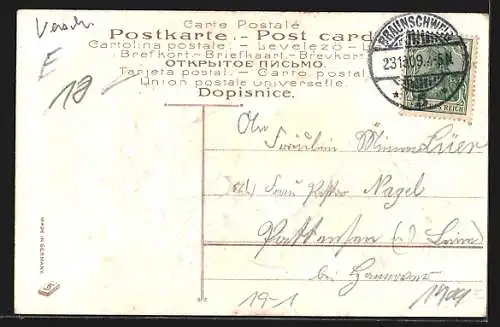 Versch.
E
18
Carte Postale
Postkarte. - Post card
Cartolina postale. - Levelező - L
Brefkort - Briefkaart - Brevkort
ОТКРЫТОЕ ПИСЬМО.
Tarjeta postal. - Carto postal
Union postale universelle.
Dopisnice.
BRAUNSCHWEIG
23.1.09.
REICH
An
Fräulein Minna Lüer
Frau Nagel
Pattensen (a/ Leine)
bei Hannover
MADE IN GERMANY.
19-1
1909